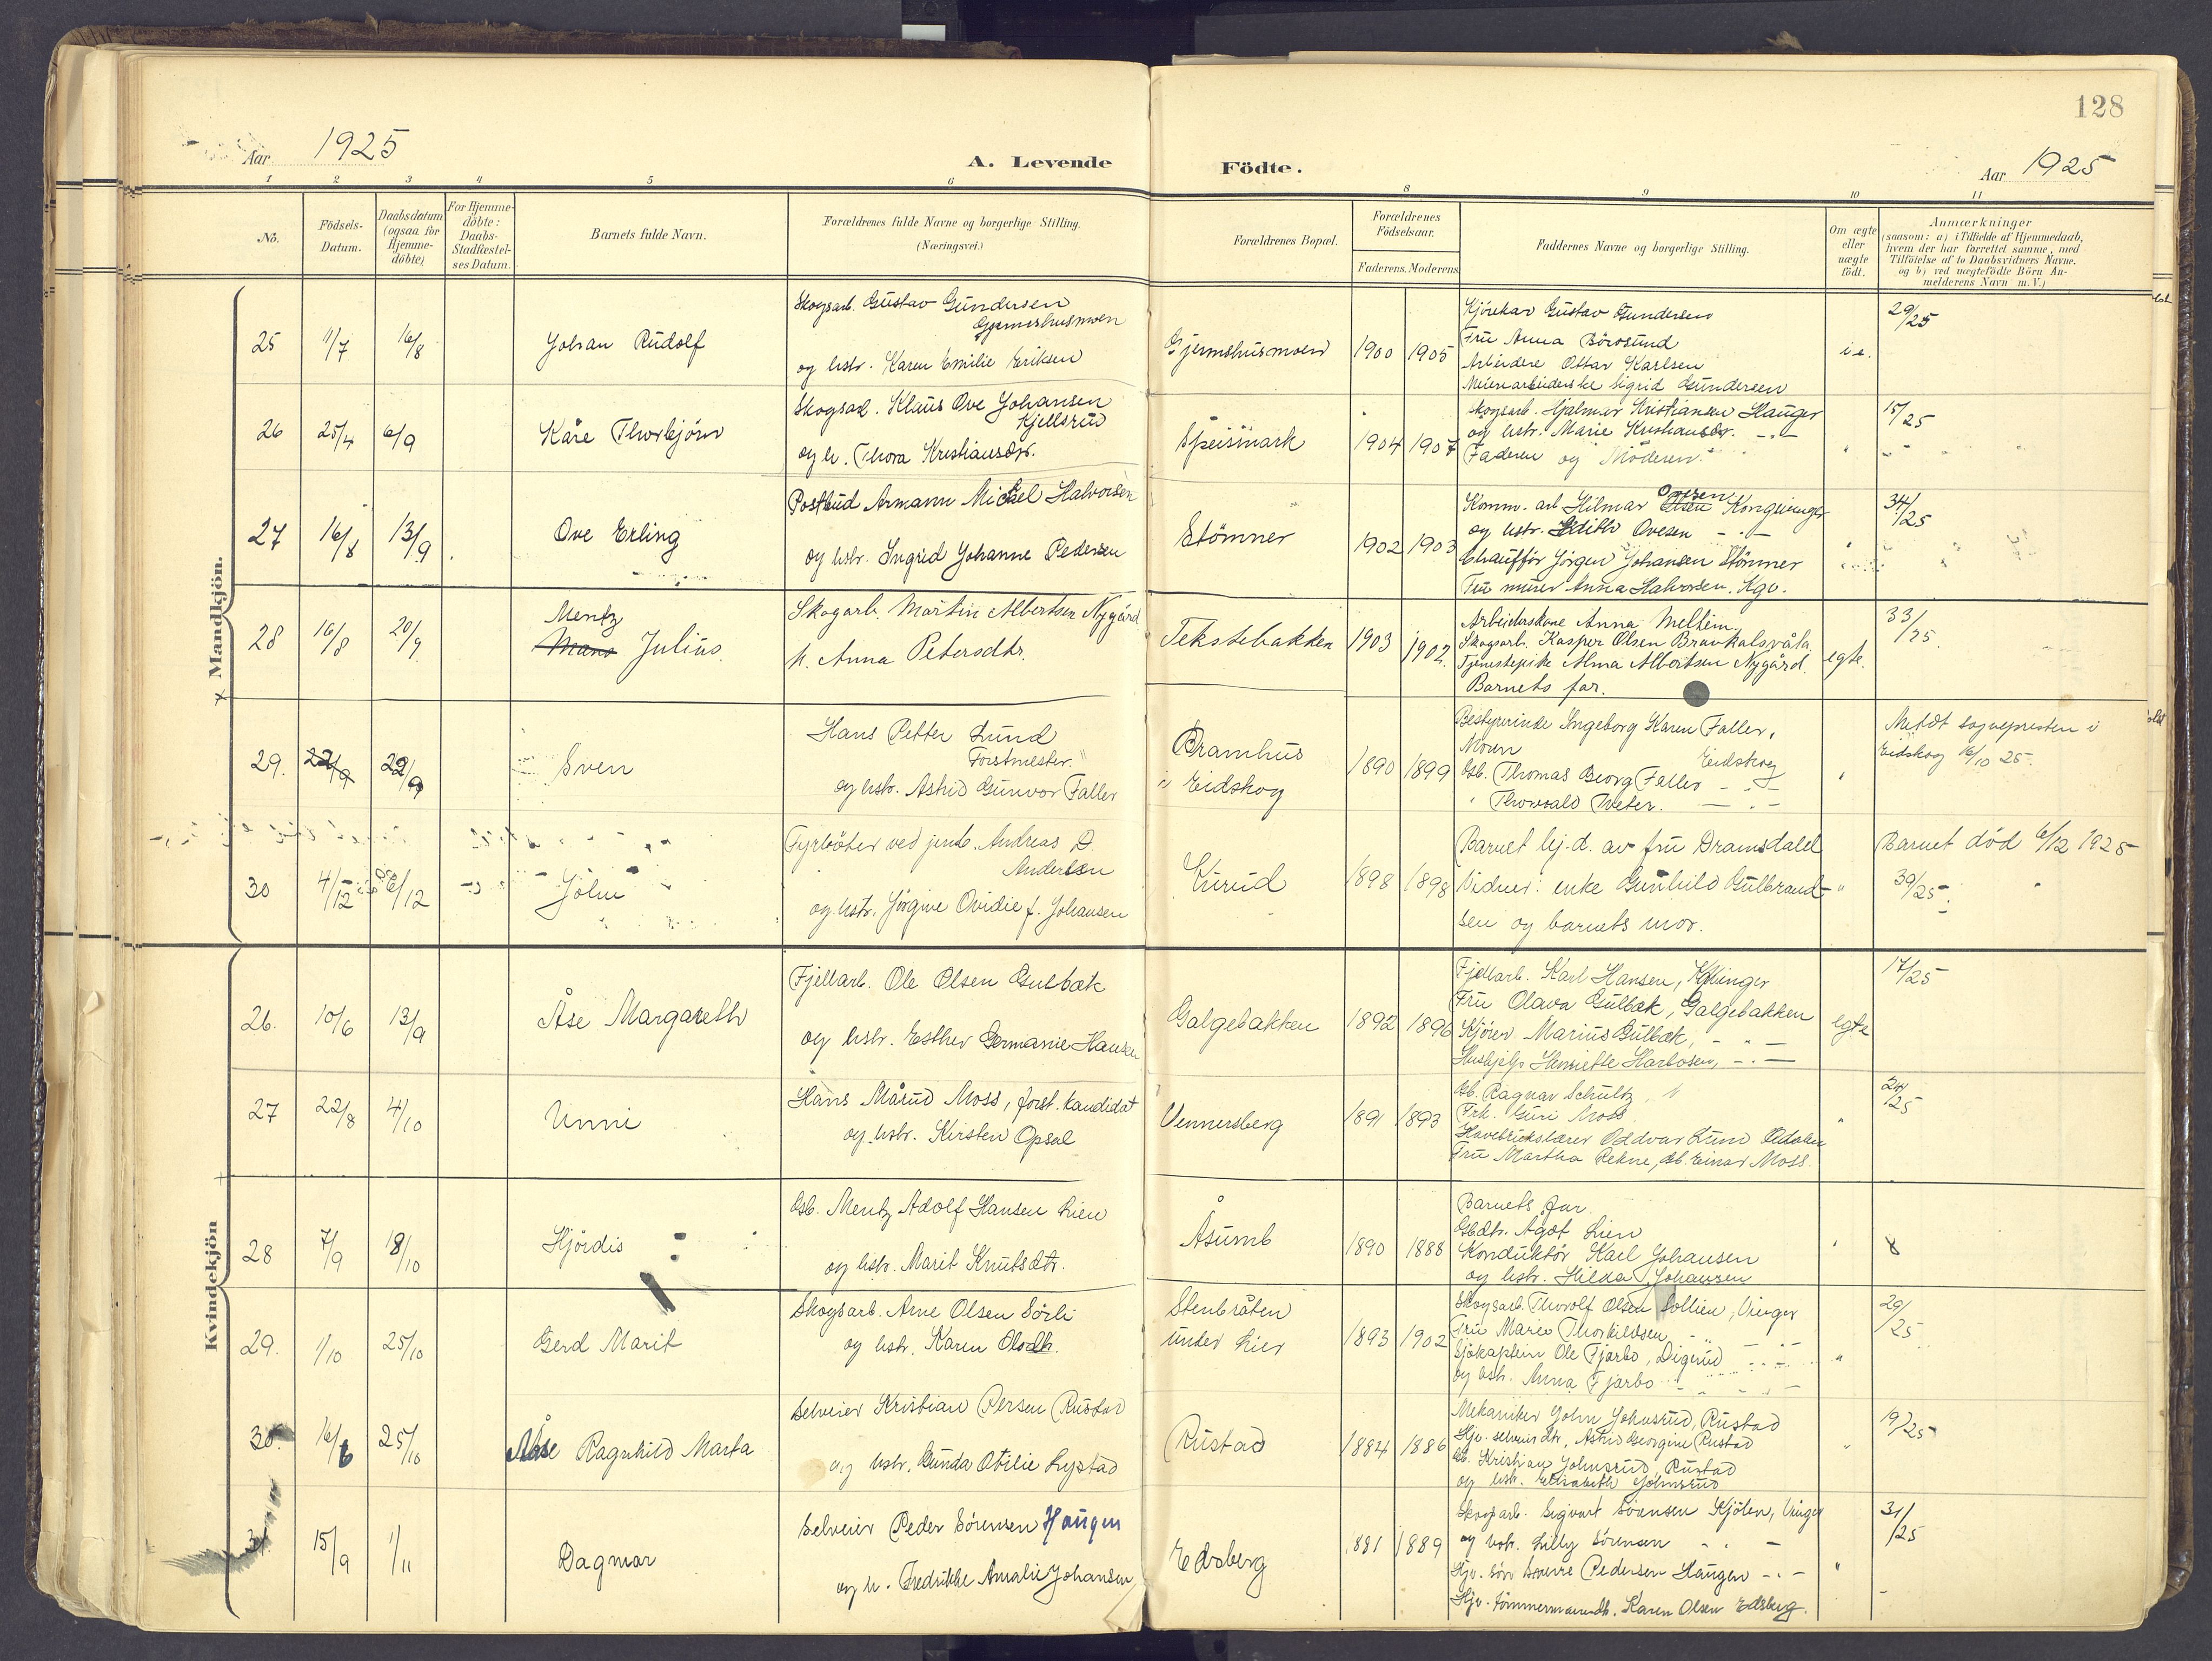 128
Aar 1925
A. Levende Födte.
Aar 1925
1 2 3 4 5 6 8 9 10 11
No.
Födsels-
Datum.
Daabsdatum
(ogsaa for
Hjemme-
döbte)
For Hjemme-
döbte:
Daabs-
Stadfæstel-
ses Datum.
Barnets fulde Navn.
Forældrenes fulde Navne og borgerlige Stilling.
(Næringsvei.)
Forældrenes Bopæl.
Forældrenes
Födselsaar.
Faderens. Moderens.
Faddernes Navne og borgerlige Stilling.
Om ægte
eller
uægte
födt.
Anmærkninger
(saasom: a) i Tilfælde af Hjemmedaab,
hvem der har forrettet samme, med
Tilföielse af to Daabsvidners Navne.
og b) ved uægtefödte Börn An-
melderens Navn m. V.)
Mandkjön.
25 11/7 16/8 Johan Rudolf
Skogsarb. Gustav Gundersen
Gjermshusmoen
og hstr. Karen Emilie Eriksen
Gjermshusmoen 1900 1905
Kjörekar Gustav Gundersen
Fru Anna Börosund
Arbeidere Ottar Karlsen
Meieriarbeiderske Sigrid Gundersen
i e.
29/25
26 25/4 6/9 Kåre Thorbjörn
Skogsarb. Klaus Ove Johansen
Kjellsrud
og h. Thora Kristiansdtr.
Speismark 1904 1907
Skogsarb. Hjalmar Kristiansen Hauger
og hstr. Marie Kristiansdtr. -"-
Faderen og Moderen.
15/25
27 16/8 13/9 Ove Erling
Postbud Armann Micael Halvorsen
og hstr. Ingrid Johanne Pedersen
Stömner 1902 1903
Komm. arb. Hilmar Olsen Ovesen Kongsvinger
og hstr. Edith Ovesen -"-
Chauffför Jörgen Johansen Stömner
Fru murer Anna Halvorsen. Kgv.
34/25
28 16/8 20/9 Mentz
Mans Julius.
Skogarb. Martin Albertsen Nygård
h. Anna Petersdtr.
Tekstebakken 1903 1902.
Arbeiderskone Anna Melhein.
Skogsarb. Kasper Olsen
Tjenestepike Alma Albertsen Nygård.
Barnets far.
egte.
33/25.
29. 22/9 29/9 Sven
Hans Petter Lund
Forstmester.
og hstr. Astrid Gunvor Faller
Bramhus
i Eidskog 1890 1899
Bestyrerinde Ingeborg Karen Faller,
Moren
Eidskog
Gb. Thomas Georg Faller -"-
" Thorvald Tveter. -"-
"
Meldt sogneprest i
Eidskog 16/10 25.
30 4/12 6/12 John
Fyrböter ved jernb. Andreas D.
Andersen
og hstr. Jörgine Ovidie f. Johansen
Kurud 1898 1898
Barnet hj.d. av fru Dramsdalel
Vidner: enke Gunhild Gulbrand-
sen og barnets mor.
"
Barnet död 6/12 1925
39/25.
Kvindekjön
26. 10/6 13/9 Åse Margareth
Fjellarb. Ole Olsen Gulbæk
og hstr. Esther Germanie Hansen
Galgebakken 1892 1896
Fjellarb. Karl Hansen,
Fru Olava Gulbæk, Galgebakken
Kjörer Marius Gulbæk, -"-
Hushjelp Henriette Harbosen, -"-
egte
17/25
27 22/8 4/10 Unni
Hans Mårud Moss, forst. kandidat
og hstr. Kirsten Opsal
Vennersberg 1891 1893
Gb. Ragnar Schultz
Frk. Guri Moss
Havebrukslærer Oddvar Lund
Fru Martha Rekne, Gb. Einar Moss.
"
24/25
28 7/9 18/10 Hjördis
Gb. Mentz Adolf Hansen Lien
og hstr. Marit Knutsdtr.
Åsumb 1890 1888
Barnets far.
Gbdtr. Agot Lien
Konduktör Karl Johansen
og hstr. Hilda Johansen
"
29. 1/10 25/10 Gerd Marit
Skogsarb. Arne Olsen Sörli
og hstr. Karen Olsdtr.
Stenbråten
under Lier 1893 1902
Skogsarb. Thorolf Olsen Sollien, Vinger
Fru Marie Thorkildsen -"-
Sjökaptein Ole Fjarbo, Digerud -"-
og hstr. Anna Fjarbo -"-
"
29/25
30. 16/6 25/10 Åse Ragnhild Marta
Selveier Kristian Persen Rustad
og hstr. Gunda Otilie Lystad
Rustad 1884 1886
Mekaniker John Johnsrud, Rustad
Hjv. selveierdtr. Astrid Georgine Rustad
Gb. Kristian Johnsrud, Rustad
og hstr. Elisabeth Johnsrud
"
19/25
31. 15/9 1/11 Dagmar
Selveier Peder Sörensen Haugen
og h. Fredrikke Amalie Johansen
Edsberg 1881 1889
Skogsarb. Sigvart Sörensen Kjölen, Vinger
og hstr. Lilly Sörensen -"-
Hjv. sön Sverre Pedersen Haugen -"-
Hjv. Tömmermandsdtr. Karen Olsen Edsberg.
"
31/25